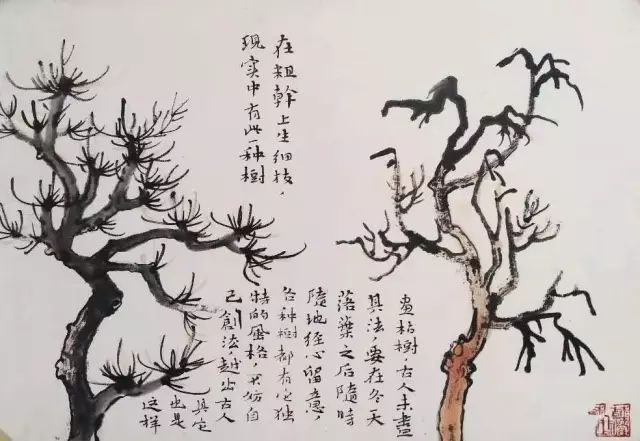 在粗幹上生细枝，
现实中有此一种樹
畫枯樹古人未盡
其法，要在冬天
落葉之后隨時
隨地经心留意，
各种樹都有它独
特的風格，不妨自
己創法，越出古人
也是
这样